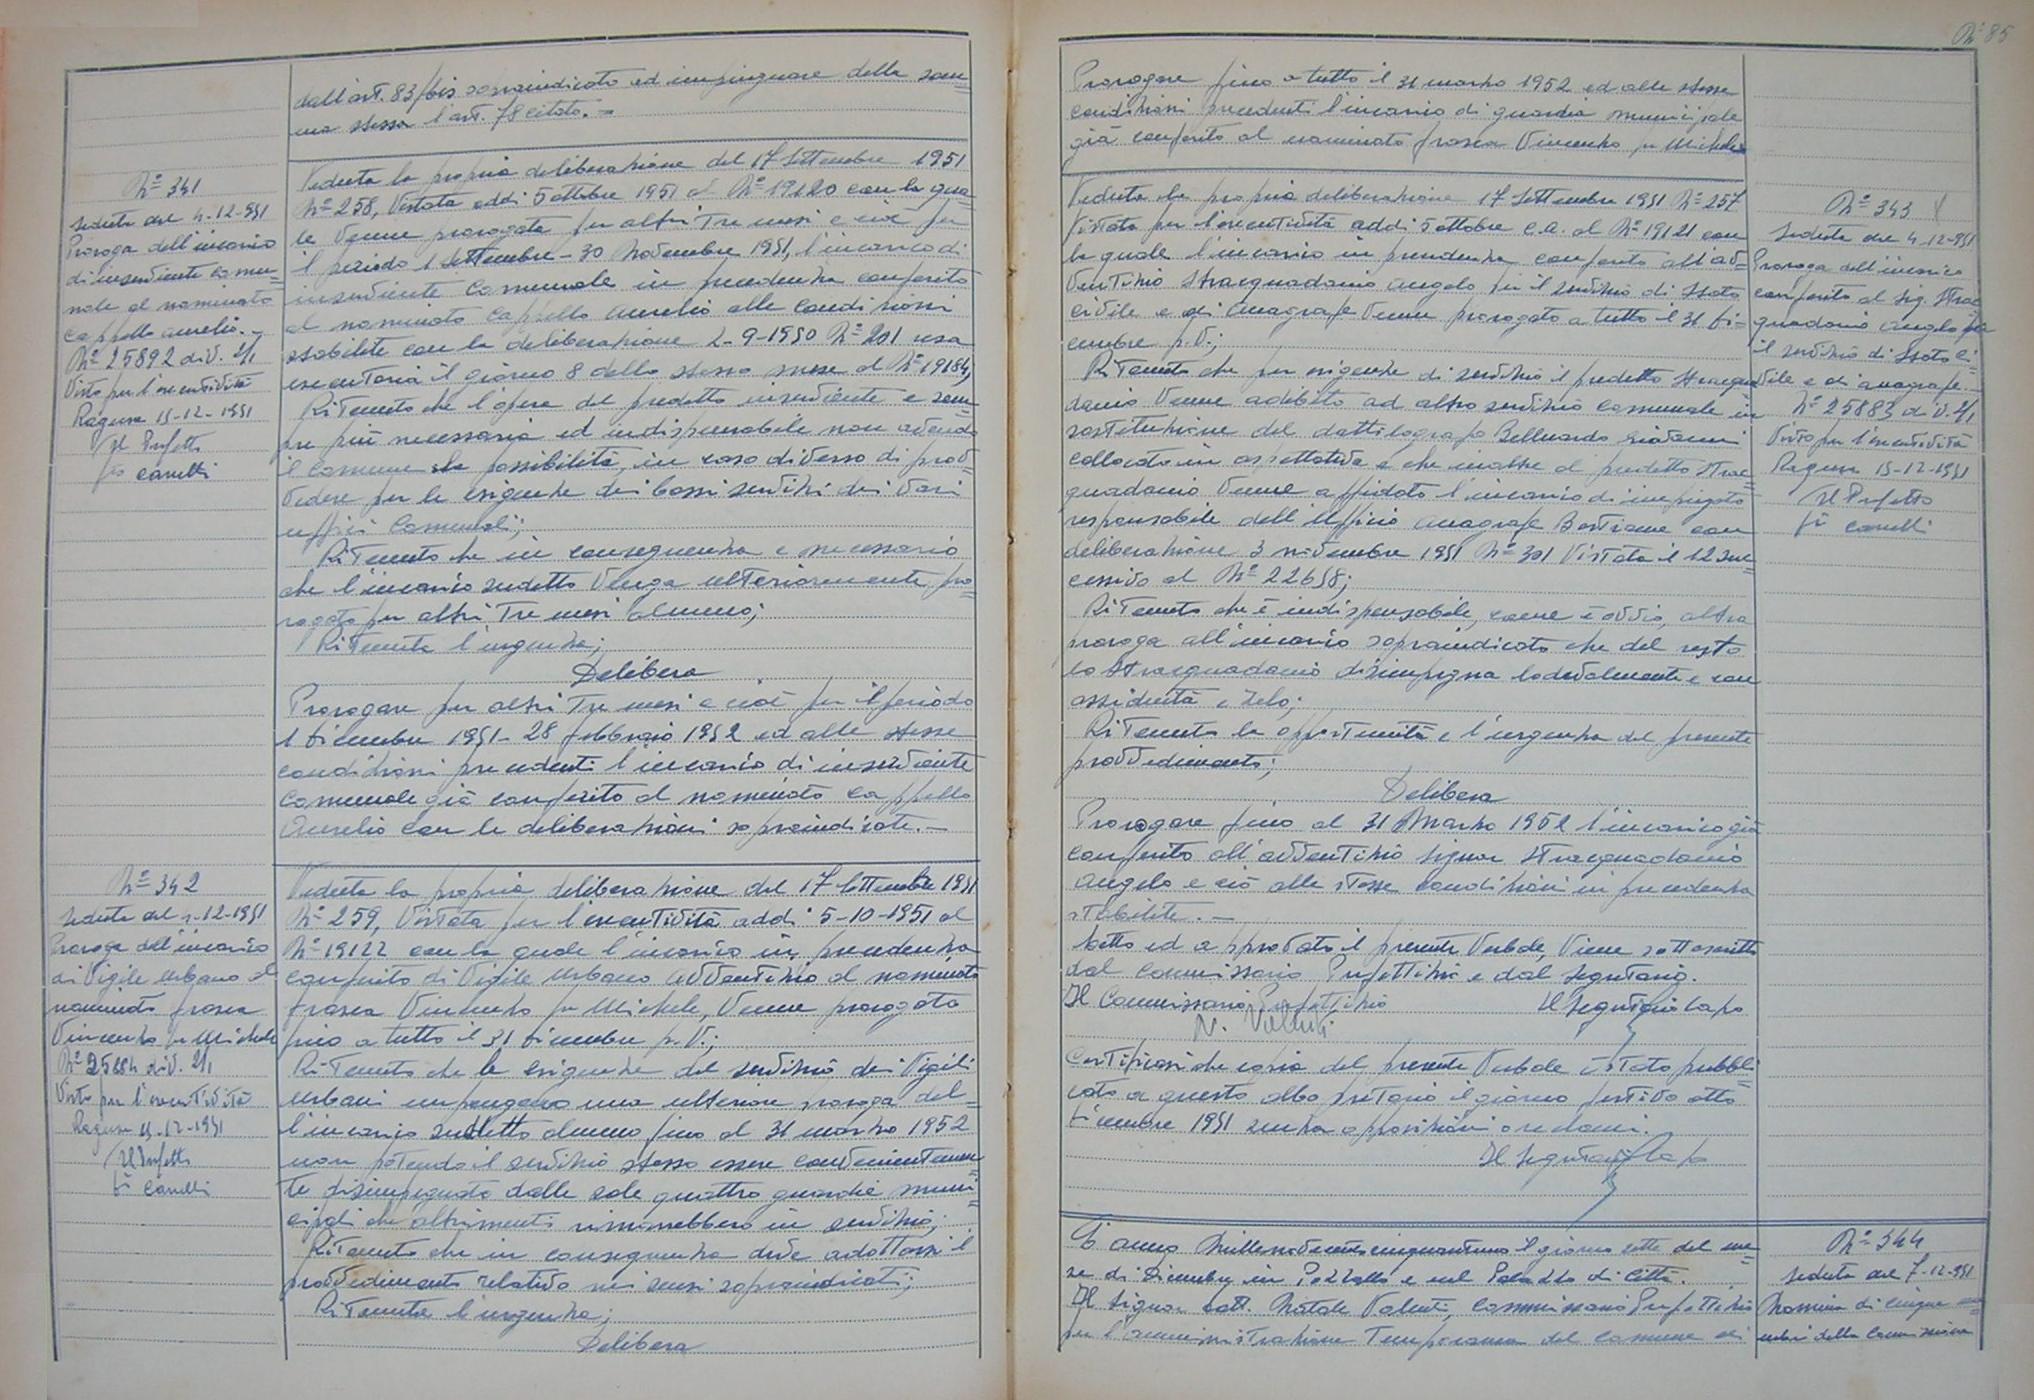 dall'art. 83/bis sopraindicato ed impinguare della som=
ma stessa l'art. 78 citato. -
Nº 341
Seduta del 4-12-951
Proroga dell'incarico
di inserviente comu=
nale al nominato
Cappello Aurelio. -
Nº 25892 div. 2/1
Visto per l'esecutività
Ragusa 15-12-1951
Il Prefetto
fto
Veduta la propria deliberazione del 17 Settembre 1951
Nº 258, Vistata addì 5 ottobre 1951 al Nº 19120 con la qua=
le venne prorogato per altri tre mesi e cioè per
il periodo 1 Settembre - 30 Novembre 1951, l'incarico di
inserviente Comunale in precedenza conferito
al nominato Cappello Aurelio alle condizioni
stabilite con la deliberazione 2-9-1950 Nº 201 resa
esecutoria il giorno 8 dello stesso mese al Nº 19184,
Ritenuto che l'opera del predetto inserviente è sem=
pre più necessaria ed indispensabile non avendo
il Comune la possibilità, in caso diverso di prov=
vedere per le esigenze dei bassi servizi dei vari
uffici Comunali;
Ritenuto che in conseguenza è necessario
che l'incarico sudetto venga ulteriormente pro=
rogato per altri tre mesi almeno;
Ritenuta l'urgenza;
Delibera
Prorogare per altri tre mesi e cioè per il periodo
1 dicembre 1951 - 28 febbraio 1952 ed alle stesse
condizioni precedenti l'incarico di inserviente
Comunale già conferito al nominato Cappello
Aurelio con le deliberazioni sopraindicate. -
Nº 342
Seduta del 4-12-1951
Proroga dell'incarico
di Vigile Urbano al
nominato Frasca
Vincenzo fu Michele
Nº 25884 div. 2/1
Visto per l'esecutività
Ragusa 15-12-1951
Il Prefetto
fto
Veduta la propria deliberazione del 17 Settembre 1951
Nº 259, Vistata per l'esecutività addì 5-10-1951 al
Nº 19122 con la quale l'incarico in precedenza
conferito di Vigile Urbano Avventizio al nominato
Frasca Vincenzo fu Michele, venne prorogato
fino a tutto il 31 dicembre p.v.;
Ritenuto che le esigenze del servizio dei Vigili
Urbani impongono una ulteriore proroga del=
l'incarico sudetto almeno fino al 31 marzo 1952
non potendo il servizio stesso essere convenientemen=
te disimpegnato dalle sole quattro guardie muni=
cipali che altrimenti rimarrebbero in servizio;
Ritenuto che in conseguenza deve adottarsi il
provvedimento relativo nei sensi sopraindicati;
Ritenuta l'urgenza;
Delibera
Nº 85
Prorogare fino a tutto il 31 marzo 1952 ed alle stesse
condizioni precedenti l'incarico di guardia municipale
già conferito al nominato Frasca Vincenzo fu Michele
Veduta la propria deliberazione 17 Settembre 1951 Nº 257
Vistata per l'esecutività addì 5 ottobre c.a. al Nº 19121 con
la quale l'incarico in precedenza conferito all'av=
ventizio Stracquadanio Angelo per il servizio di Stato
Civile e di Anagrafe venne prorogato a tutto il 31 di=
cembre p.v.;
Ritenuto che per esigenze di servizio il predetto Stracqua=
danio venne adibito ad altro servizio comunale in
sostituzione del dattilografo Belluardo Giovanni
collocato in aspettativa e che inoltre al predetto Strac=
quadanio venne affidato l'incarico di impiegato
responsabile dell'Ufficio Anagrafe Bestiame con
deliberazione 3 novembre 1951 Nº 301 Vistata il 12 suc=
cessivo al Nº 22658;
Ritenuto che è indispensabile, come è ovvio, altra
proroga all'incarico sopraindicato che del resto
lo Stracquadanio disimpegna lodevolmente e con
assiduità e zelo;
Ritenuta la opportunità e l'urgenza del presente
provvedimento;
Delibera
Prorogare fino al 31 Marzo 1952 l'incarico già
conferito all'avventizio Signor Stracquadanio
Angelo e ciò alle stesse condizioni in precedenza
stabilite. -
Letto ed approvato il presente Verbale, viene sottoscritto
dal Commissario Prefettizio e dal Segretario.
Il Commissario Prefettizio Il Segretario Capo
N. Valenti
Certificasi che copia del presente Verbale è stato pubbli=
cato a questo albo pretorio il giorno festivo otto
dicembre 1951 senza opposizioni o reclami.
Il Segretario Capo
Nº 343
Seduta del 4-12-951
Proroga dell'incarico
conferito al Sig. Strac
quadanio Angelo per
il servizio di Stato Ci=
vile e di anagrafe. -
Nº 25883 div. 2/1
Visto per l'esecutività
Ragusa 15-12-1951
Il Prefetto
fto
L'anno Millenovecentocinquantuno il giorno sette del me=
se di Dicembre, in Pozzallo e nel Palazzo di Città.
Il Signor Dott. Natale Valenti, Commissario Prefettizio
per l'amministrazione Temporanea del Comune di
Nº 344
Seduta del 7-12-951
Nomina di cinque mem=
bri della Commissione